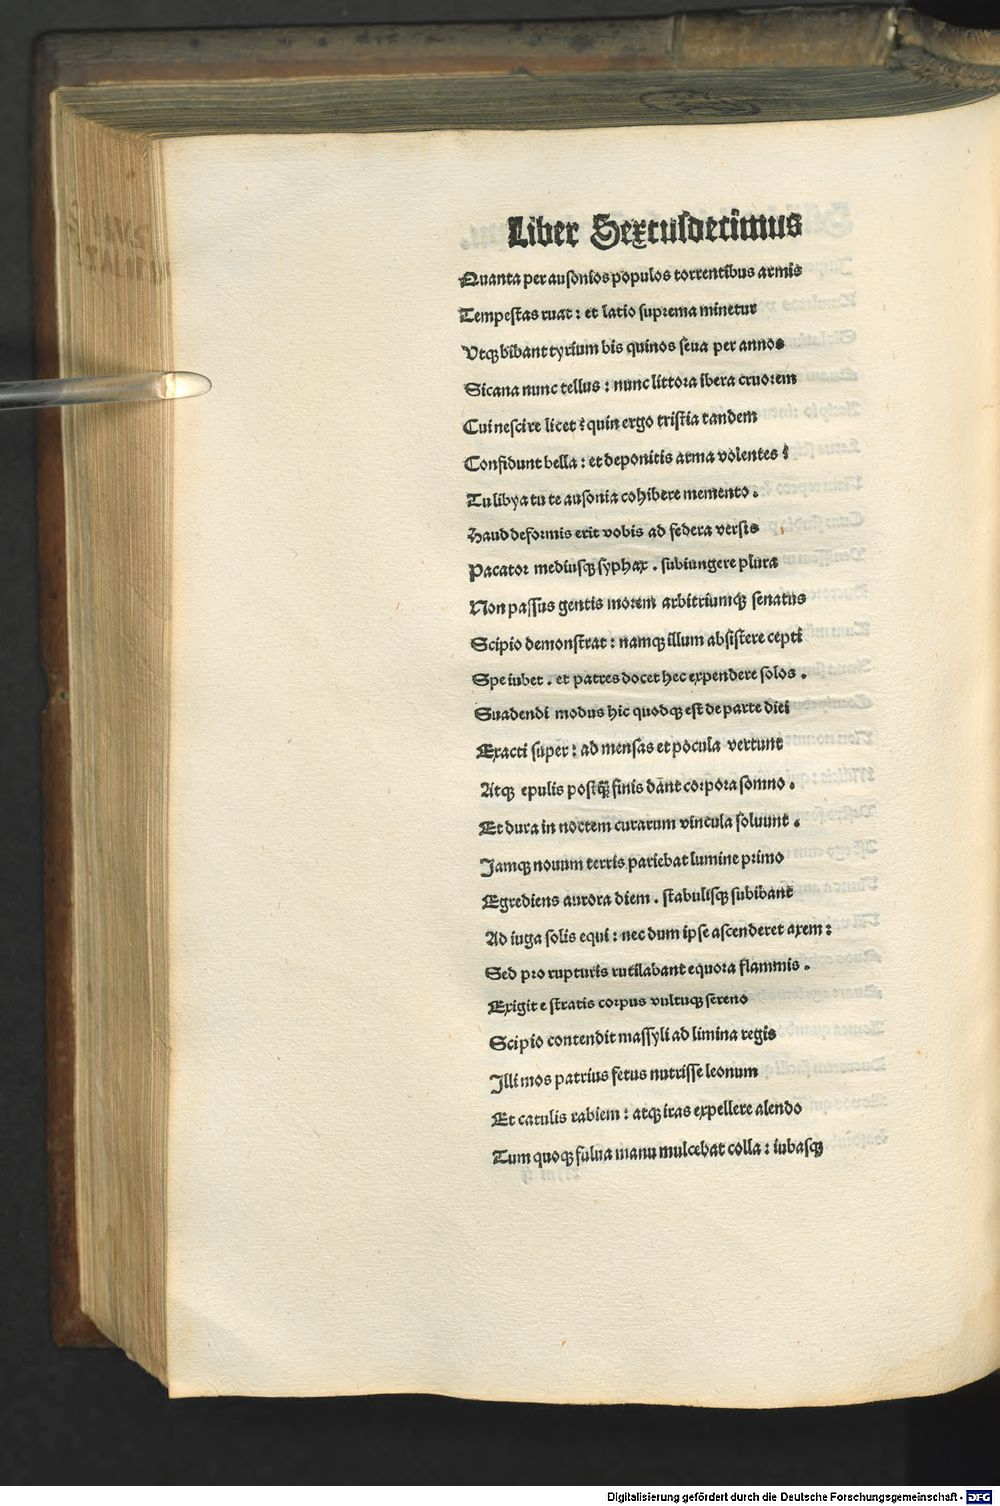 Liber Sextusdecimus
Quanta per ausonios populos torrentibus armis
Tempestas ruat : et latio suprema minetur
Utqꝫ bibant tyrium bis quinos seua per annos
Sicana nunc tellus : nunc littora ibera cruorem
Cui nescire licet ? quin ergo tristia tandem
Confidunt bella : et depositis arma volentes ?
Tu libya tu te ausonia cohibere memento .
Haud deformis erit vobis ad federa versis
Pacator mediusqꝫ syphax . subiungere plura
Non passus gentis morem arbitriumqꝫ senatus
Scipio demonstrat : namqꝫ illum absistere cepti
Spe iubet . et patres docet hec expendere solos .
Suadendi modus hic quodqꝫ est de parte diei
Exacti super : ad mensas et pocula vertunt
Atqꝫ epulis postq̄ꝫ finis dant corpora somno .
Et dura in noctem curarum vincula soluunt .
Jamqꝫ nouum terris pariebat lumine primo
Egrediens aurora diem . stabulisqꝫ subibant
Ad iuga solis equi : nec dum ipse ascenderet axem :
Sed pro rupturis rutilabant equora flammis .
Exigit e stratis corpus vultuqꝫ sereno
Scipio contendit massyli ad limina regis
Illi mos patrius fetus nutrisse leonum
Et catulis rabiem : atqꝫ iras expellere alendo
Tum quoqꝫ fulua manu mulcebat colla : iubasqꝫ
Digitalisierung gefördert durch die Deutsche Forschungsgemeinschaft - DFG